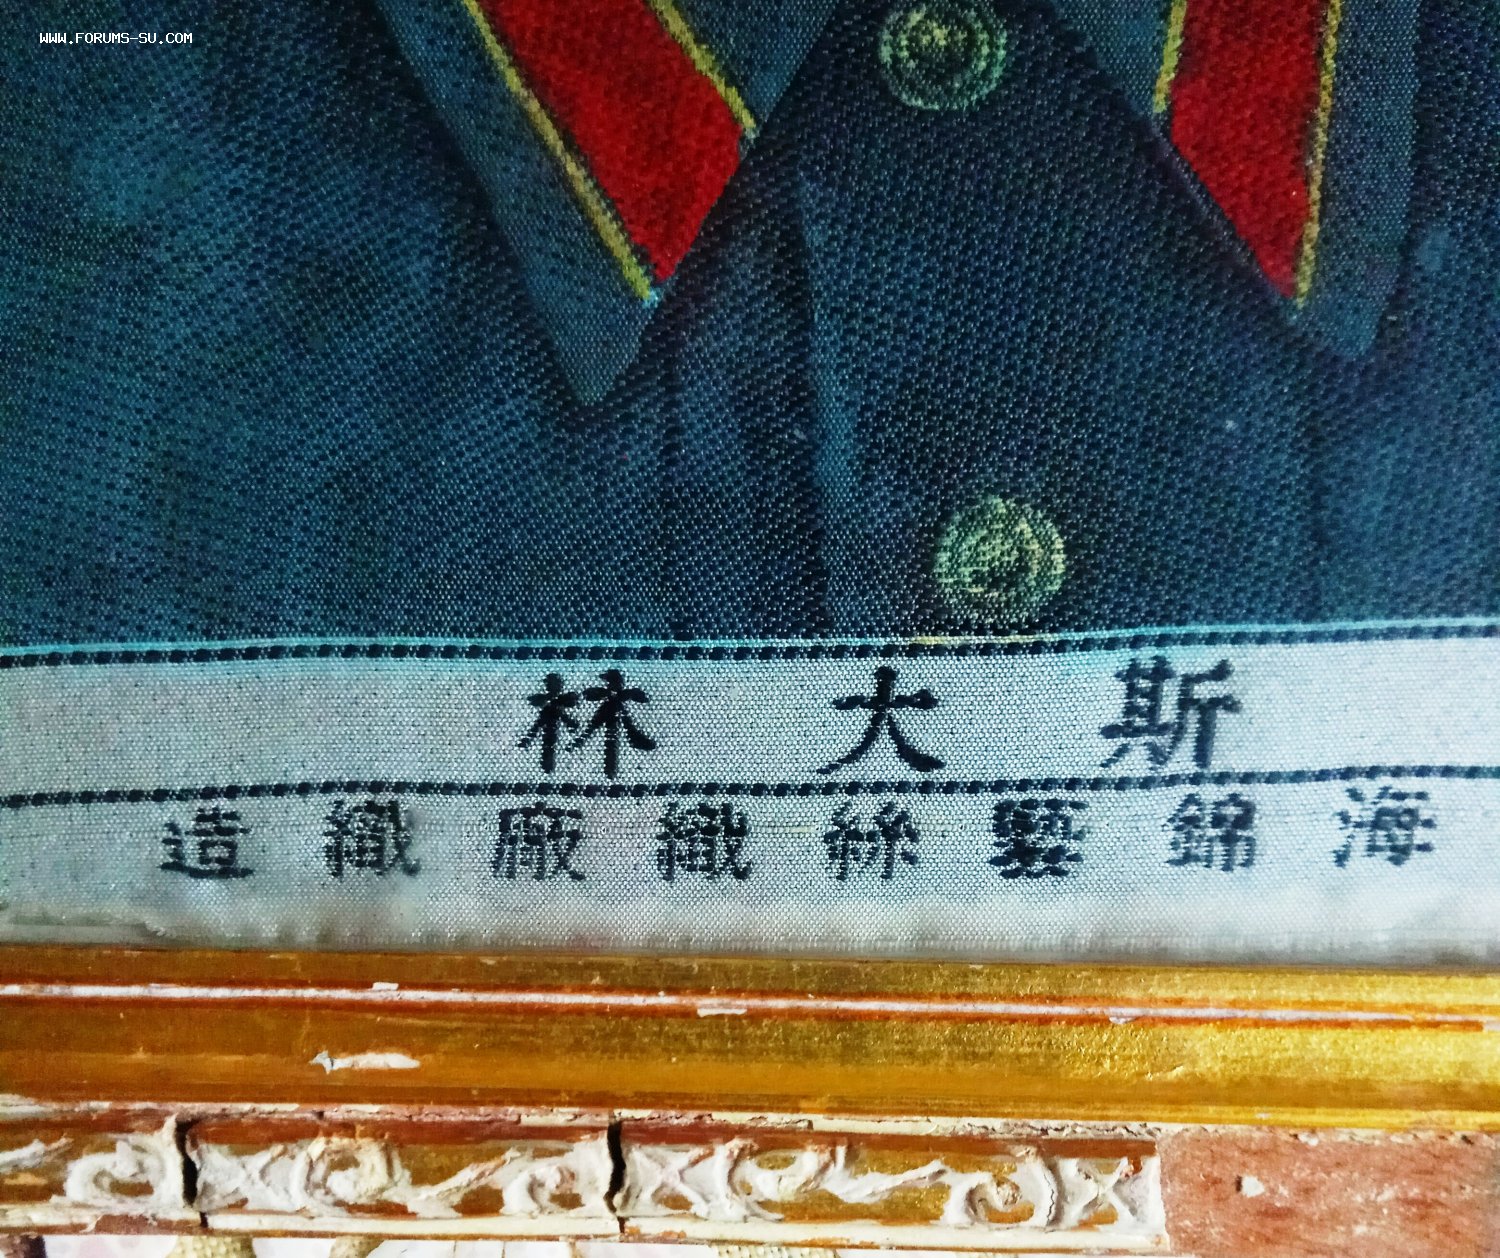 WWW.FORUMS-SU.COM
斯大林
海錦藝絲織廠織造